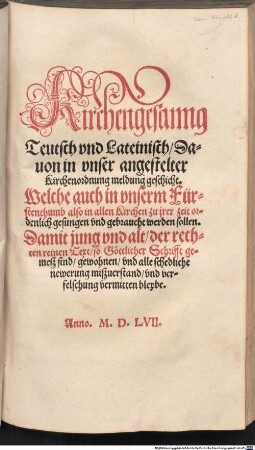 Kirchengesanng
Teutsch vnd Lateinisch/ Da-
uon in vnser angestelter
Kirchenordnung meldung geschicht.
Welche auch in vnserm Für-
stenthumb also in allen Kirchen zu jrer zeit or-
denlich gesungen vnd gebraucht werden sollen.
Damit jung vnd alt/ der rech-
ten reinen Text/ so Göttlicher Schrifft ge-
meß sind/ gewohnen/ vnd alle schedliche
newerung mißuerstand/ vnd ver-
felschung vermitten bleybe.
Anno. M. D. LVII.